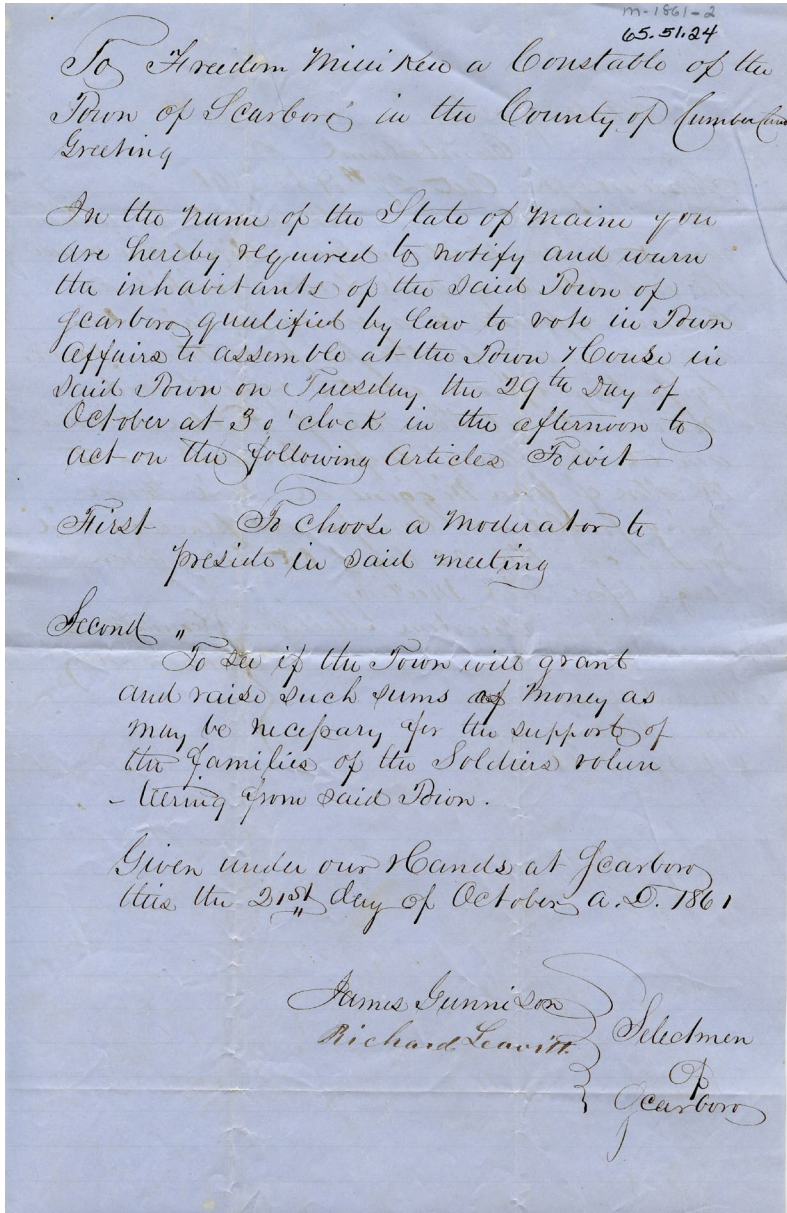 m-1861-2
65.51.24
To Freedom Milliken a Constable of the
Town of Scarboro' in the County of Cumberland
Greeting
In the name of the State of Maine you
are hereby required to notify and warn
the inhabitants of the said Town of
Scarboro qualified by law to vote in Town
Affairs to assemble at the Town House in
said Town on Tuesday the 29th Day of
October at 3 o'clock in the afternoon to
act on the following Articles To wit
First To choose a Moderator to
preside in said meeting
Second "
To see if the Town will grant
and raise such sums of Money as
may be necessary for the support of
the families of the Soldiers volun
-teering from said Town.
Given under our Hands at Scarboro
this the 21st day of October A.D. 1861
James Gunnison
Richard Leavitt
Selectmen
of
Scarboro